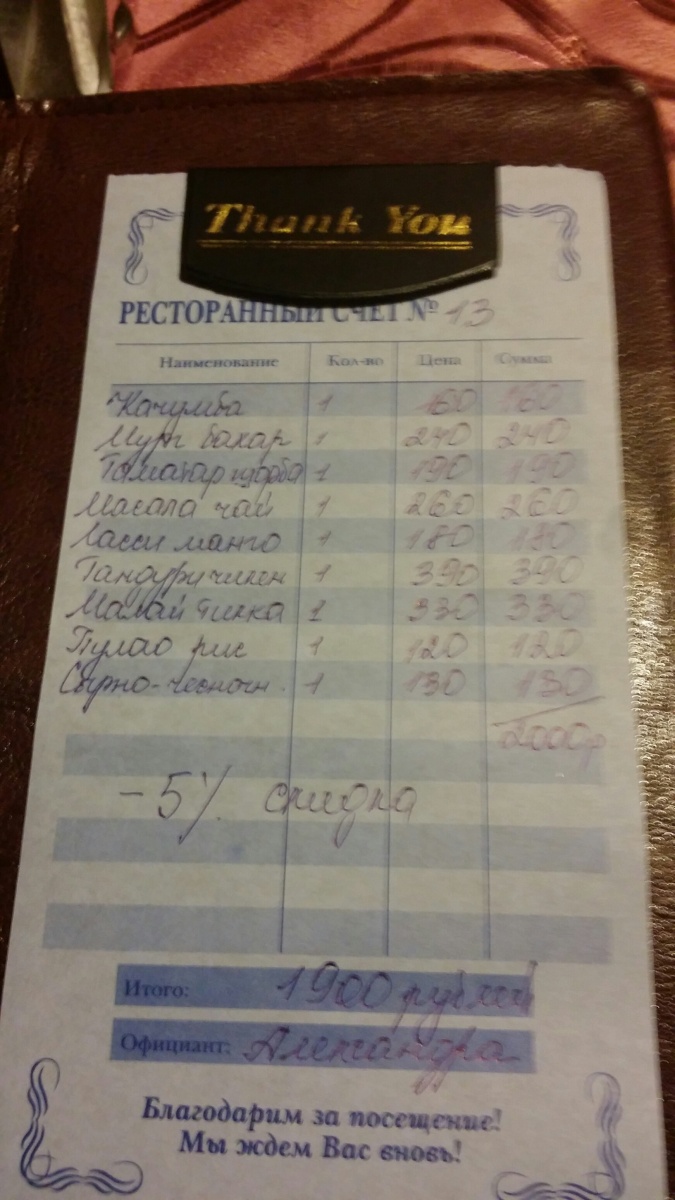 Thank You
РЕСТОРАННЫЙ СЧЕТ № 13
Наименование Кол-во Цена Сумма
Качумба 1 160 160
Мург бахар 1 240 240
Таматар шорба 1 190 190
Масала чай 1 260 260
Ласси манго 1 180 180
Тандури чикен 1 390 390
Малай тикка 1 330 330
Пулао рис 1 120 120
Сырно-чесночн. 1 130 130
2000р
-5% скидка
Итого: 1900 рублей
Официант: Александра
Благодарим за посещение!
Мы ждем Вас вновь!